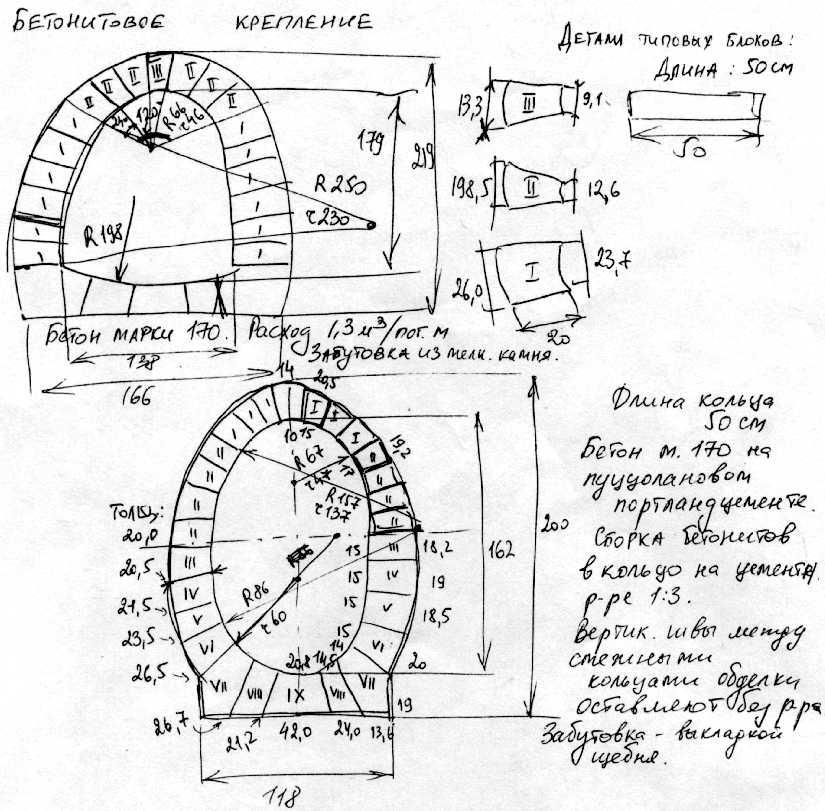 БЕТОНИТОВОЕ КРЕПЛЕНИЕ
ДЕТАЛИ ТИПОВЫХ БЛОКОВ:
ДЛИНА: 50 см
III
II
II
II
II
II
I
I
I
I
I
I
I
I
I
I
240
120°
R66
r 46
R 250
r 230
R 198
179
219
138
166
13,3
III
9,1
50
198,5
II
12,6
26,0
I
23,7
20
Бетон марки 170. Расход 1,3 м³/пог. м
Забутовка из мелк. камня.
14
20,5
10
15
19,2
17
R 67
r 47
R 157
r 137
R 86
r 60
I
I
I
I
I
I
II
II
II
II
II
II
III
III
IV
IV
V
V
VI
VI
VII
VIII
IX
VIII
VII
Толщ:
20,0
20,5
21,5
23,5
26,5
26,7
21,2
42,0
24,0
13,6
20,8
14,5
14
15
15
15
15
18,2
19
18,5
20
19
162
200
118
Длина кольца
50 см
Бетон м. 170 на
пуццолановом
портландцементе.
Сборка бетонитов
в кольцо на цементн.
р-ре 1:3.
Вертик. швы между
смежными
кольцами обделки
оставляют без р-ра
Забутовка - выкладкой
щебня.